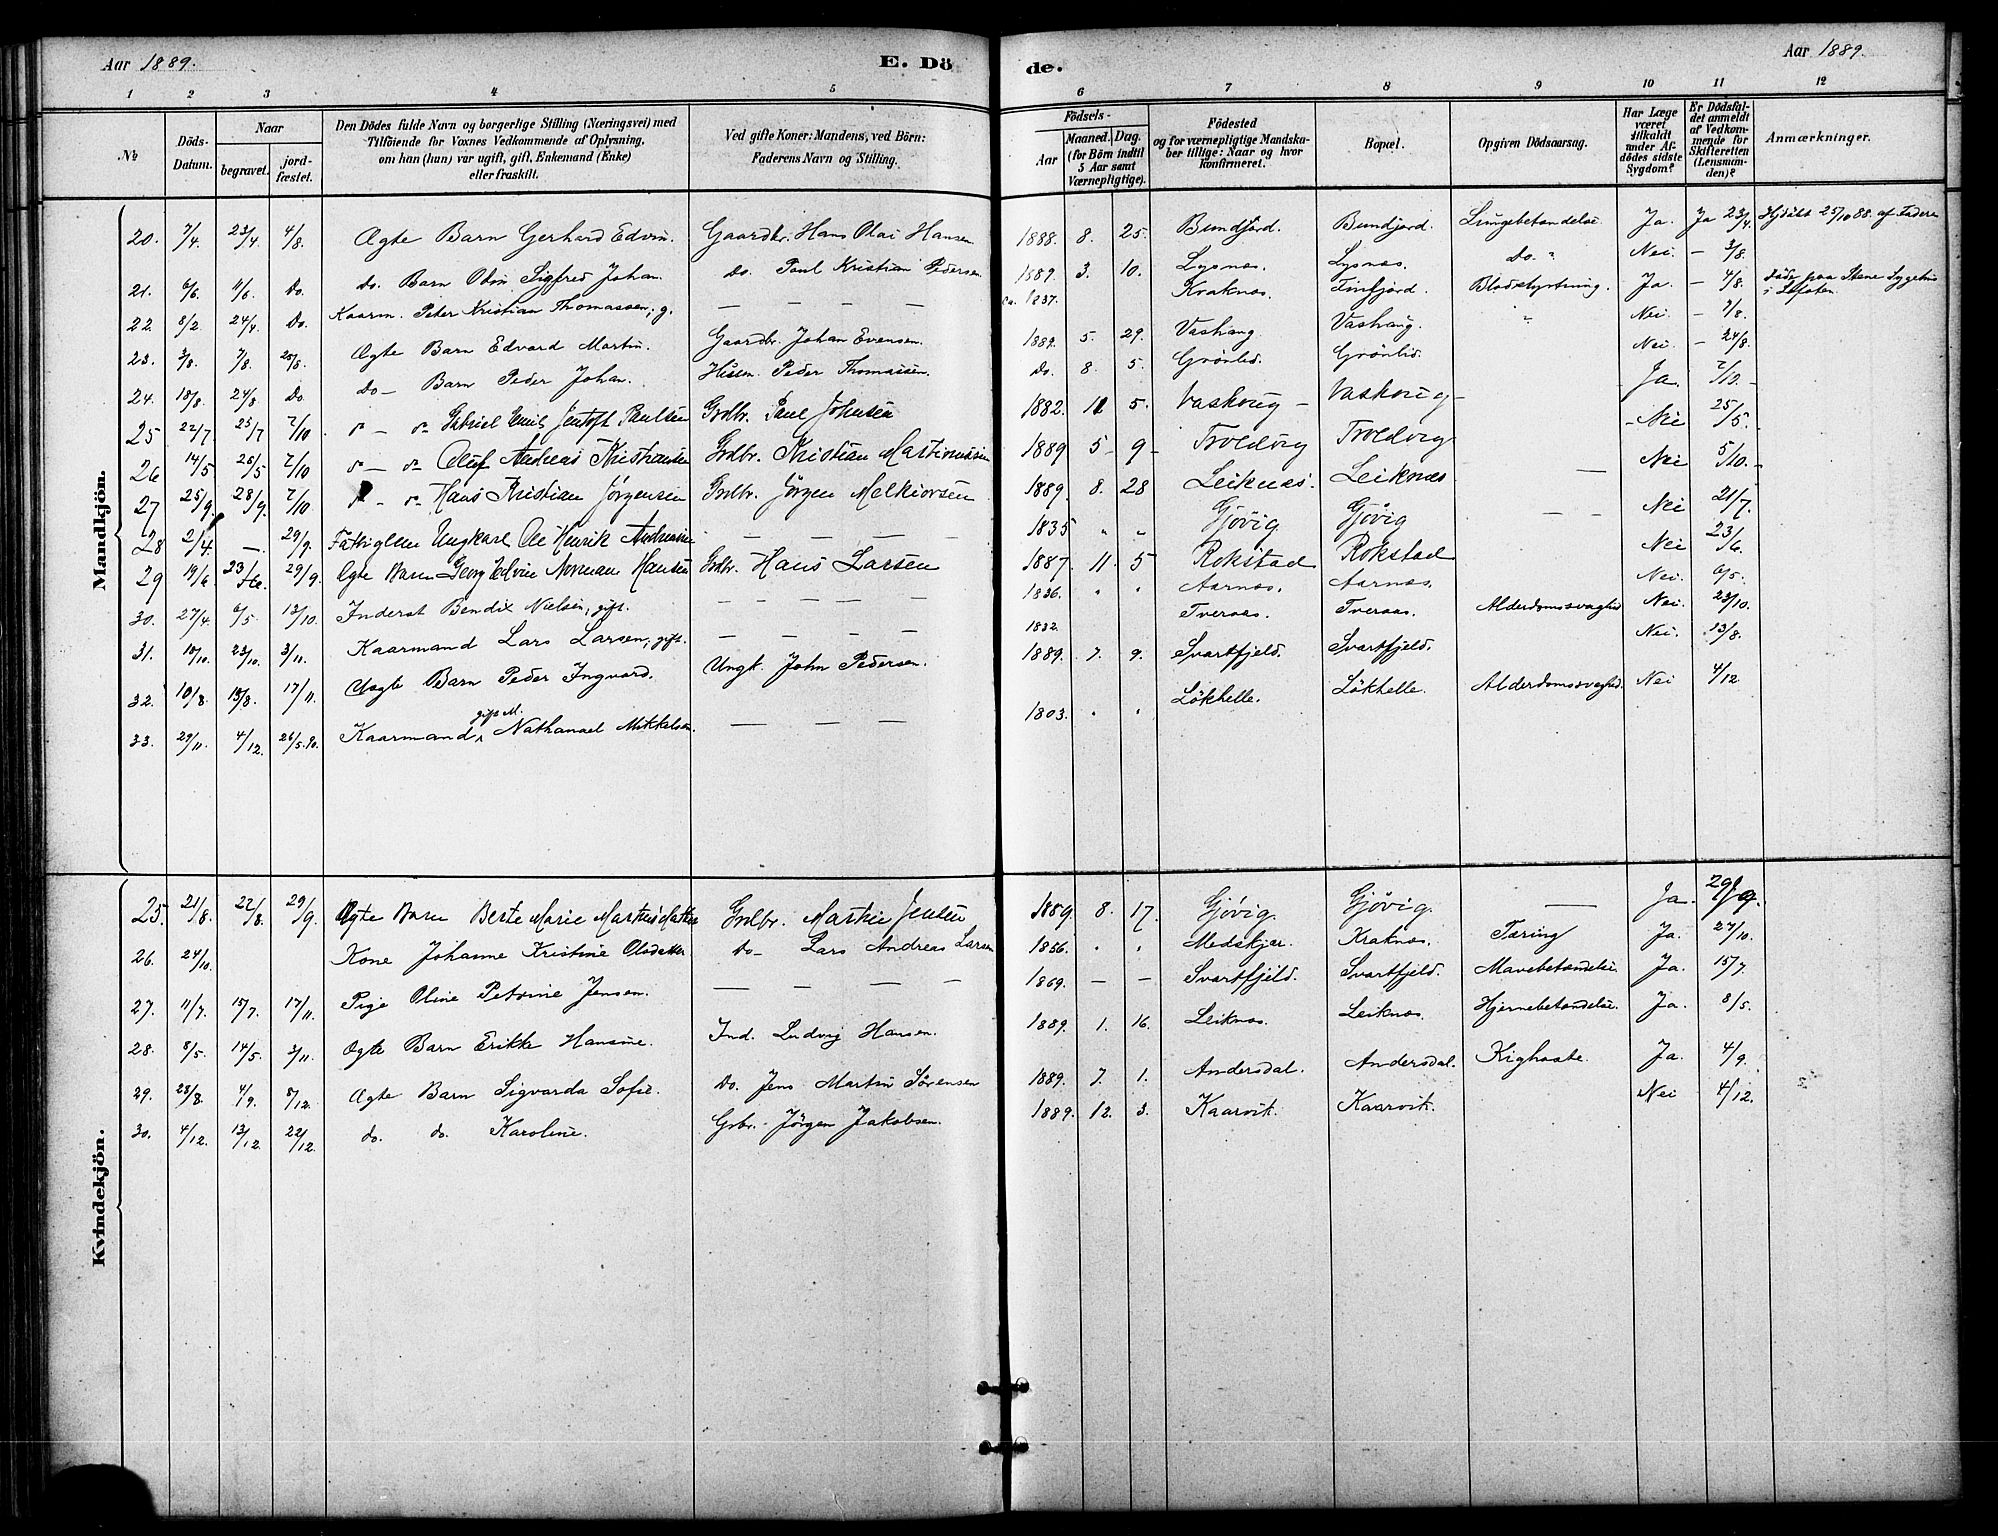 Aar 1889.
E. Dö
de.
Aar 1889.
1 2 3 4 5 6 7 8 9 10 11 12
№
Döds-Datum.
Naar
begravet.
jordfæstet.
Den Dödes fulde Navn og borgerlige Stilling (Næringsvei) med
Tilföiende for Voxnes Vedkommende af Oplysning,
om han (hun) var ugift, gift, Enkemand (Enke)
eller fraskilt.
Ved gifte Koner: Mandens, ved Börn:
Faderens Navn og Stilling.
Födsels-
Aar
Maaned. Dag.
(for Börn indtil
5 Aar samt
Værnepligtige).
Födested
og for værnepligtige Mandskaber tillige: Naar og hvor
konfirmeret.
Bopæl.
Opgiven Dödsaarsag.
Har Læge
været
tilkaldt
under Afdödes sidste
Sygdom?
Er Dödsfaldet anmeldt
af Vedkommende for
Skifteretten
(Lensmanden)?
Anmærkninger.
Mandkjön.
20. 7/4. 23/4. 4/8. Ægte Barn Gerhard Edvin. Gaardbr. Hans Olai Hansen 1888. 8. 25. Bundfjord. Bundfjord. Lungebetændelse. Ja. Ja 23/4. Hjdöbt 25/10 88. af Faderen
21. 6/6. 11/6. Do. Do. Barn Odin Sigfred Johan. Do. Paul Kristian Pedersen 1889. 3. 10. Lysnæs. Lysnæs. Do. Nei. — 3/8.
22. 8/2. 24/4. Do. Kaarm. Peter Kristian Thomassen, g. — — — — ca. 1837. Kraknæs. Finfjord. Blodstyrtning. Ja. — 4/8. Döde paa Stene Sygehus i Lofoten.
23. 3/8. 7/8. 25/8. Ægte Barn Edvard Martin. Gaardbr. Johan Evensen. 1889. 5. 29. Vashaug. Vashaug. " Nei. — 7/8.
24. 18/8. 24/8. Do. Do— Barn Peder Johan. Husm. Peder Thomassen. Do. 8. 5. Grönlid. Grönlid. Nei. — 24/8.
25 22/7. 25/7 2/10 Gabriel Emil Jentoft Paulsen Grdbr. Paul Johnsen 1882. 11 5. Vaskoug — Vaskoug — Ja. 2/10. —
26 14/5 26/5 2/10 Oluf Andreas Kristiansen Grdbr. Kristian Martinussen 1889 5 — 9 — Troldvig Troldvig — Nei 25/5.
27 25/9. 28/9. 2/10 Hans Kristian Jörgensen Grdbr. Jörgen Melkiorsen 1889. 8. 28 Leiknæs. Leiknæs — Nei 5/10. —
28 2/4. — 29/9. Fattiglem Ungkarl Ole Henrik Andreassen — — — — 1835 " " Gjövig Gjövig — Nei 21/7.
29 19/6 23/6. 29/9. Ægte Barn Georg Edvin Norman Hansen Grdbr. Hans Larsen 1887. 11. 5 Rokstad Rokstad Nei 23/6.
30. 27/4. 6/5. 13/10. Inderst Bendix Nielsen, gift. — — — — 1836. " " Aarnæs. Aarnæs. Nei. 6/5.
31. 10/10. 23/10. 3/11. Kaarmand Lars Larsen, gift. — — — — 1832. Tveraas. Tveraas. Alderdomssvaghed Nei. 23/10.
32. 10/8. 13/8. 17/11. Ægte Barn Peder Ingvard. Ungk. John Pedersen. 1889. 7. 9. Svartfjeld. Svartfjeld. Nei. 13/8.
33. 29/11. 4/12. 26/5.90. Kaarmand gift M. Nathanael Mikkelsen. — — — 1803. " " Lökhelle. Lökhelle. Alderdomssvaghed. Nei 4/12
Kvindekjön.
25. 21/8. 22/8. 29/9. Ægte Barn Berte Marie Grdbr. Martin Jensen 1889. 8. 17. Gjövig. Gjövig. — Ja. 29/9.
26. 24/10. Kone Johanne Kristine Olsdatter Do— Lars Andreas Larsen 1856. " " Medskjær. Kraknæs. Tæring Ja. 27/10.
27. 11/7. 15/7. 17/11. Pige Oline Petrine Jensen. — — — — 1869. — — Svartfjeld. Svartfjeld. Mavebetændelse. Ja. 15/7.
28. 8/5. 14/5. 3/11. Ægte Barn Erikke Hansine. Ind. Ludvig Hansen. 1889. 1. 16. Leiknæs. Leiknæs. Hjernebetændelse. Ja. 8/5.
29. 28/8. 4/9. 8/12. Ægte Barn Sigvarda Sofie. Do. Jens Martin Sörensen 1889. 7. 1. Andersdal. Andersdal. Kighoste. Ja. 4/9.
30. 4/12. 13/12. 22/12. do. do. Karoline. Grbr. Jörgen Jakobsen. 1889. 12. 3. Kaarvik. Kaarvik. Nei 4/12.